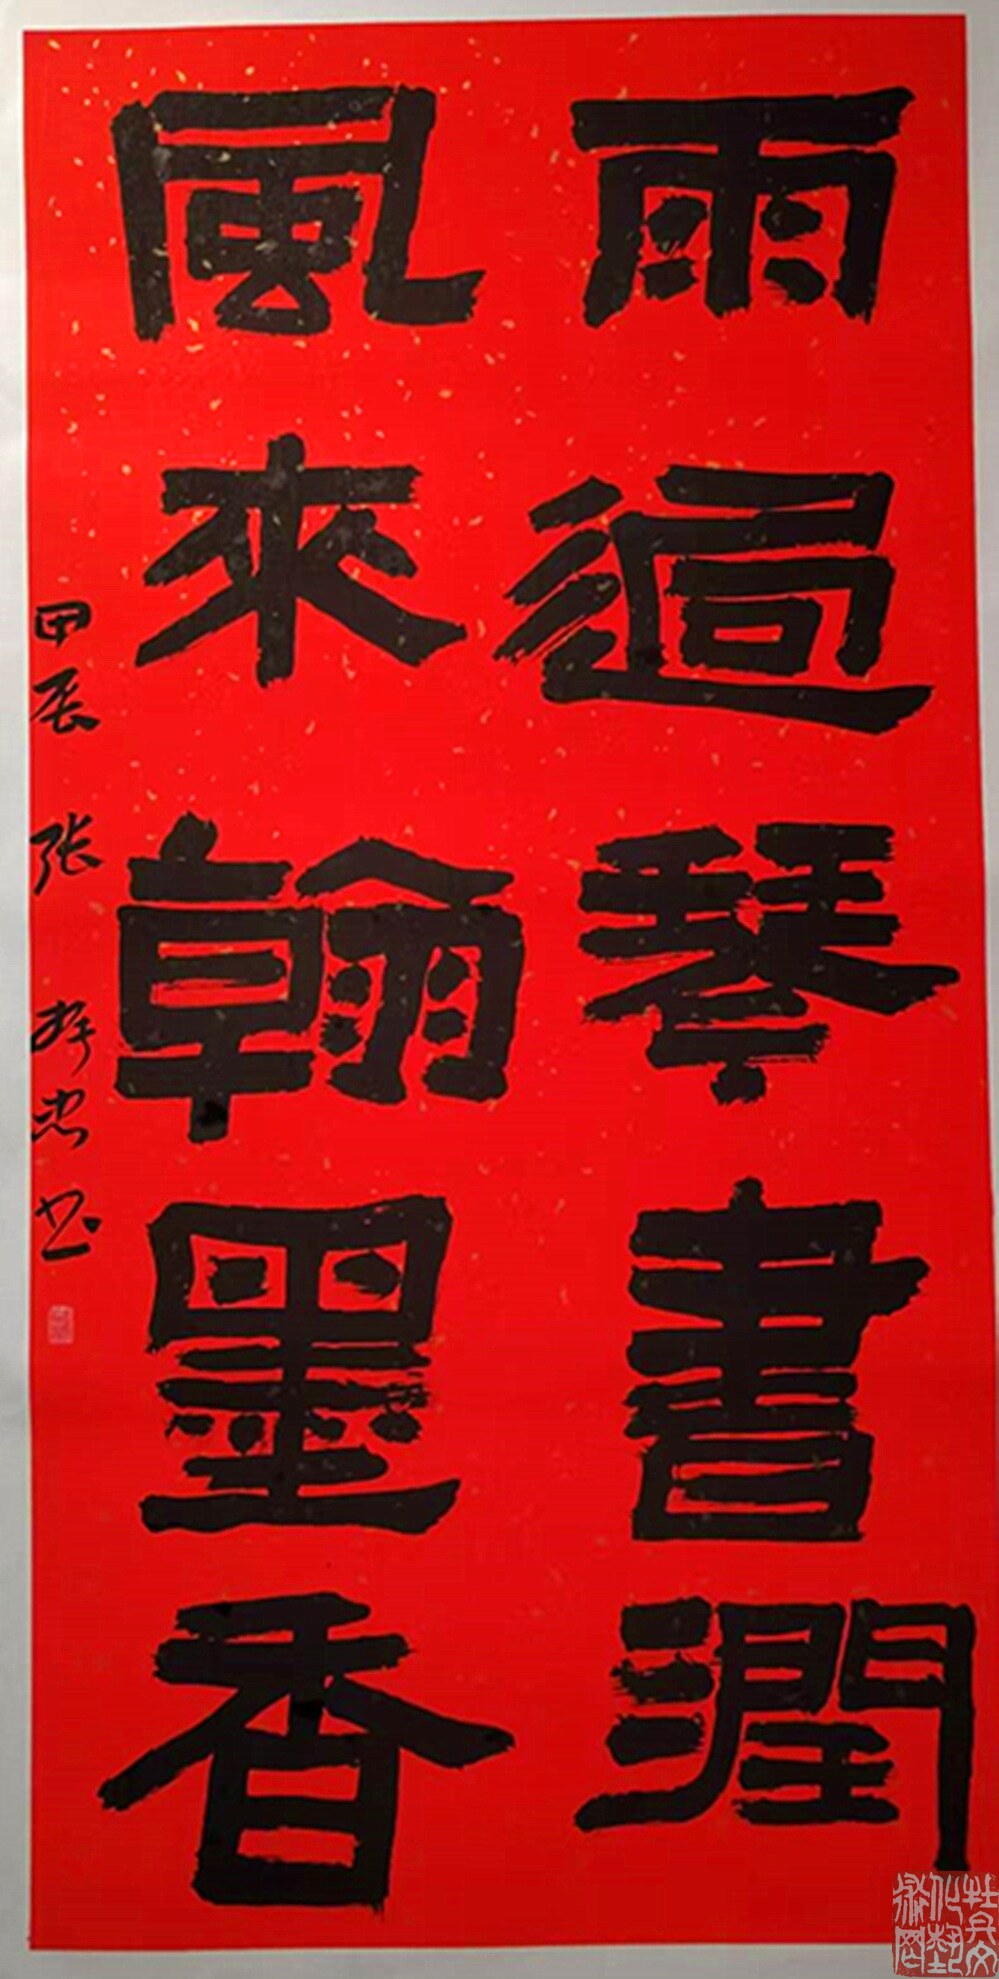 雨過琴書潤
風來翰墨香
甲辰 张 忠书